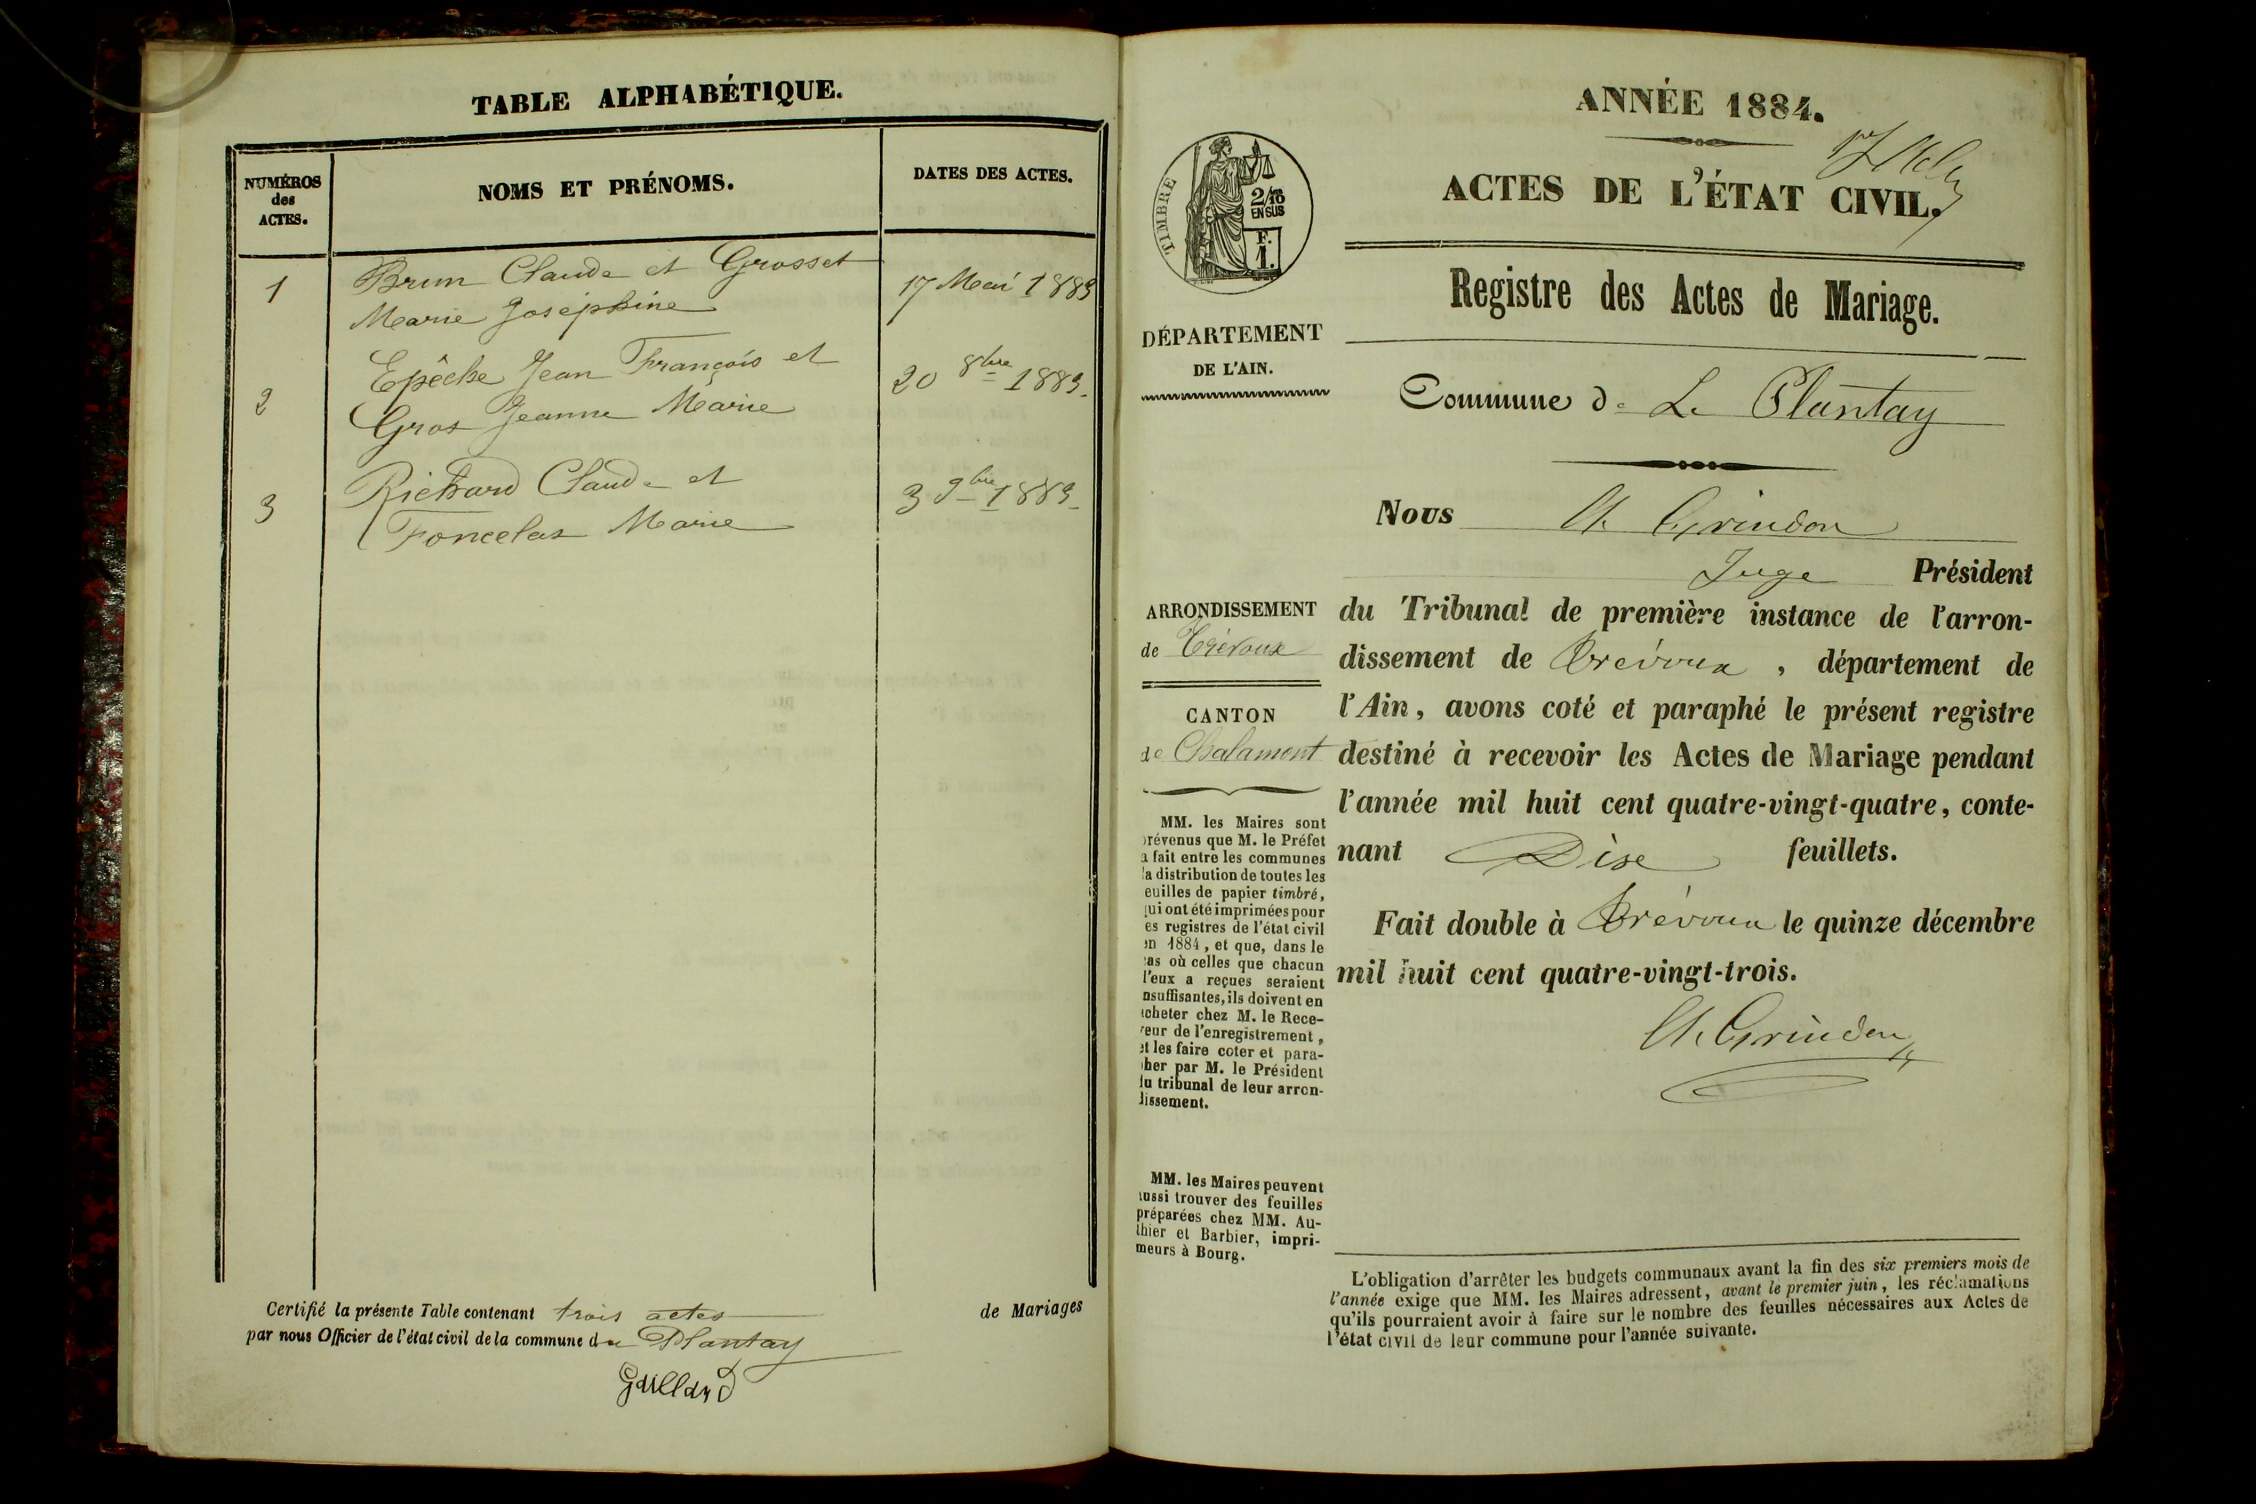 TABLE ALPHABÉTIQUE.
NUMÉROS
des
ACTES.
NOMS ET PRÉNOMS.
DATES DES ACTES.
1
Brun Claude et Grosset
Marie Joséphine
17 Mai 1883
2
Epêche Jean François et
Gros Jeanne Marie
20 8bre 1883.
3
Richard Claude et
Foncelas Marie
3 9bre 1883.
Certifié la présente Table contenant trois actes de Mariages
par nous Officier de l'état civil de la commune du Plantay
Gaillard
ANNÉE 1884.
ACTES DE L'ÉTAT CIVIL.
TIMBRE
2/10
EN SUS
F.
1.
Registre des Actes de Mariage.
DÉPARTEMENT
DE L'AIN.
Commune de Le Plantay
Nous Grindon
Juge Président
ARRONDISSEMENT
de Trévoux
CANTON
de Chalamont
du Tribunal de première instance de l'arron-
dissement de Trévoux, département de
l'Ain, avons coté et paraphé le présent registre
destiné à recevoir les Actes de Mariage pendant
l'année mil huit cent quatre-vingt-quatre, conte-
nant Dix feuillets.
Fait double à Trévoux le quinze décembre
mil huit cent quatre-vingt-trois.
Grindon
MM. les Maires sont
révenus que M. le Préfet
a fait entre les communes
la distribution de toutes les
euilles de papier timbré,
qui ont été imprimées pour
es registres de l'état civil
en 1884, et que, dans le
cas où celles que chacun
d'eux a reçues seraient
nsuffisantes, ils doivent en
acheter chez M. le Rece-
veur de l'enregistrement,
et les faire coter et para-
pher par M. le Président
du tribunal de leur arron-
dissement.
MM. les Maires peuvent
aussi trouver des feuilles
préparées chez MM. Au-
thier et Barbier, impri-
meurs à Bourg.
L'obligation d'arrêter les budgets communaux avant la fin des six premiers mois de
l'année exige que MM. les Maires adressent, avant le premier juin, les réclamations
qu'ils pourraient avoir à faire sur le nombre des feuilles nécessaires aux Actes de
l'état civil de leur commune pour l'année suivante.